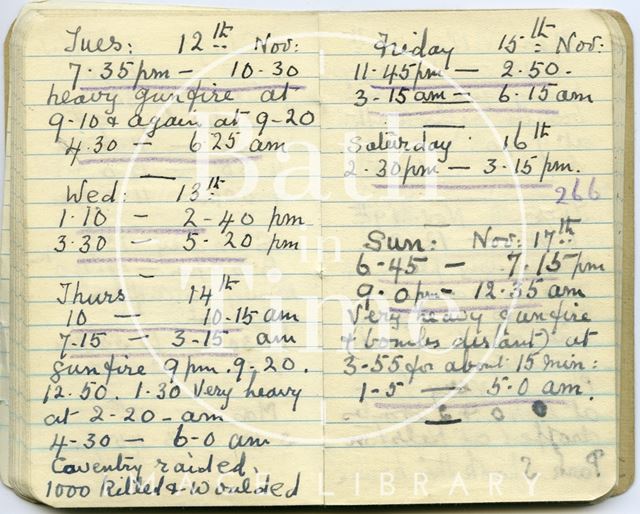 Tues: 12th Nov:
7.35pm — 10.30
heavy gunfire at
9-10 & again at 9-20
4.30 — 6.25 am
Wed: 13th
1.10 — 2-40 pm
3.30 — 5.20 pm
Thurs 14th
10 — 10.15 am
7-15 — 3-15 am
Gunfire 9pm. 9-20.
12.50. 1.30 Very heavy
at 2-20 am
4-30 — 6-0 am
Coventry raided.
1000 Killed & Woulded
Friday 15th Nov:
11.45pm — 2.50.
3-15am — 6.15am
Saturday 16th
2.30pm — 3-15 pm.
266
Sun: Nov: 17th
6-45 — 7.15pm
9.0pm - 12.35am
Very heavy gunfire
& bombs distant) at
3-55 for about 15 min:
1-5 — 5.0 am.
Bath
in
Time
IMAGE LIBRARY